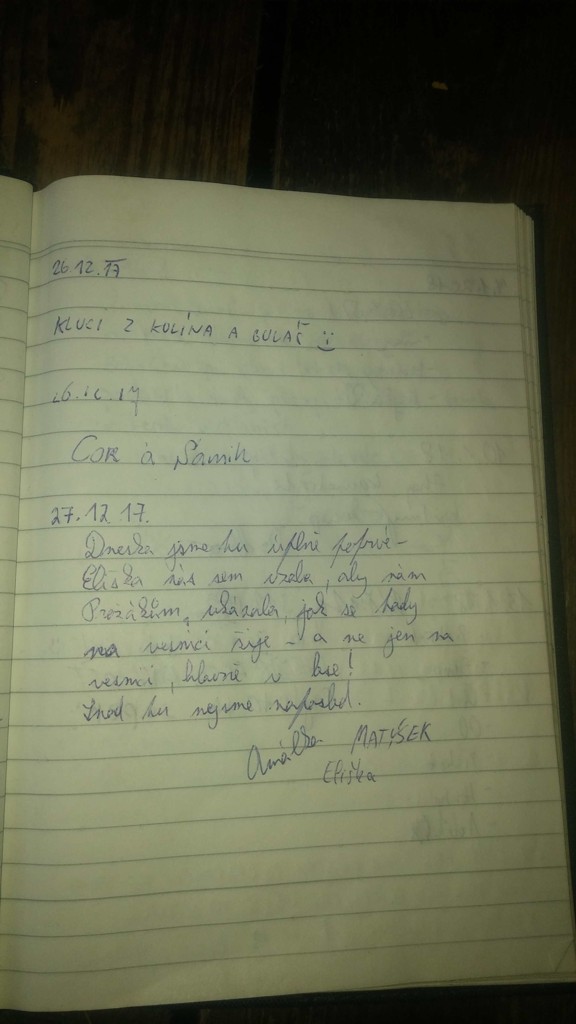 26.12.17
KLUCI Z KOLÍNA A GULÁŠ :)
26.12.17
Cor a Samik
27.12.17.
Dneska jsme tu úplně poprvé -
Eliška nás sem vzala, aby nám
Pražákům, ukázala, jak se tady
na vesnici žije - a ne jen na
vesnici, hlavně v lese!
Snad tu nejsme naposled.
Amálka MATYSEK
Eliška